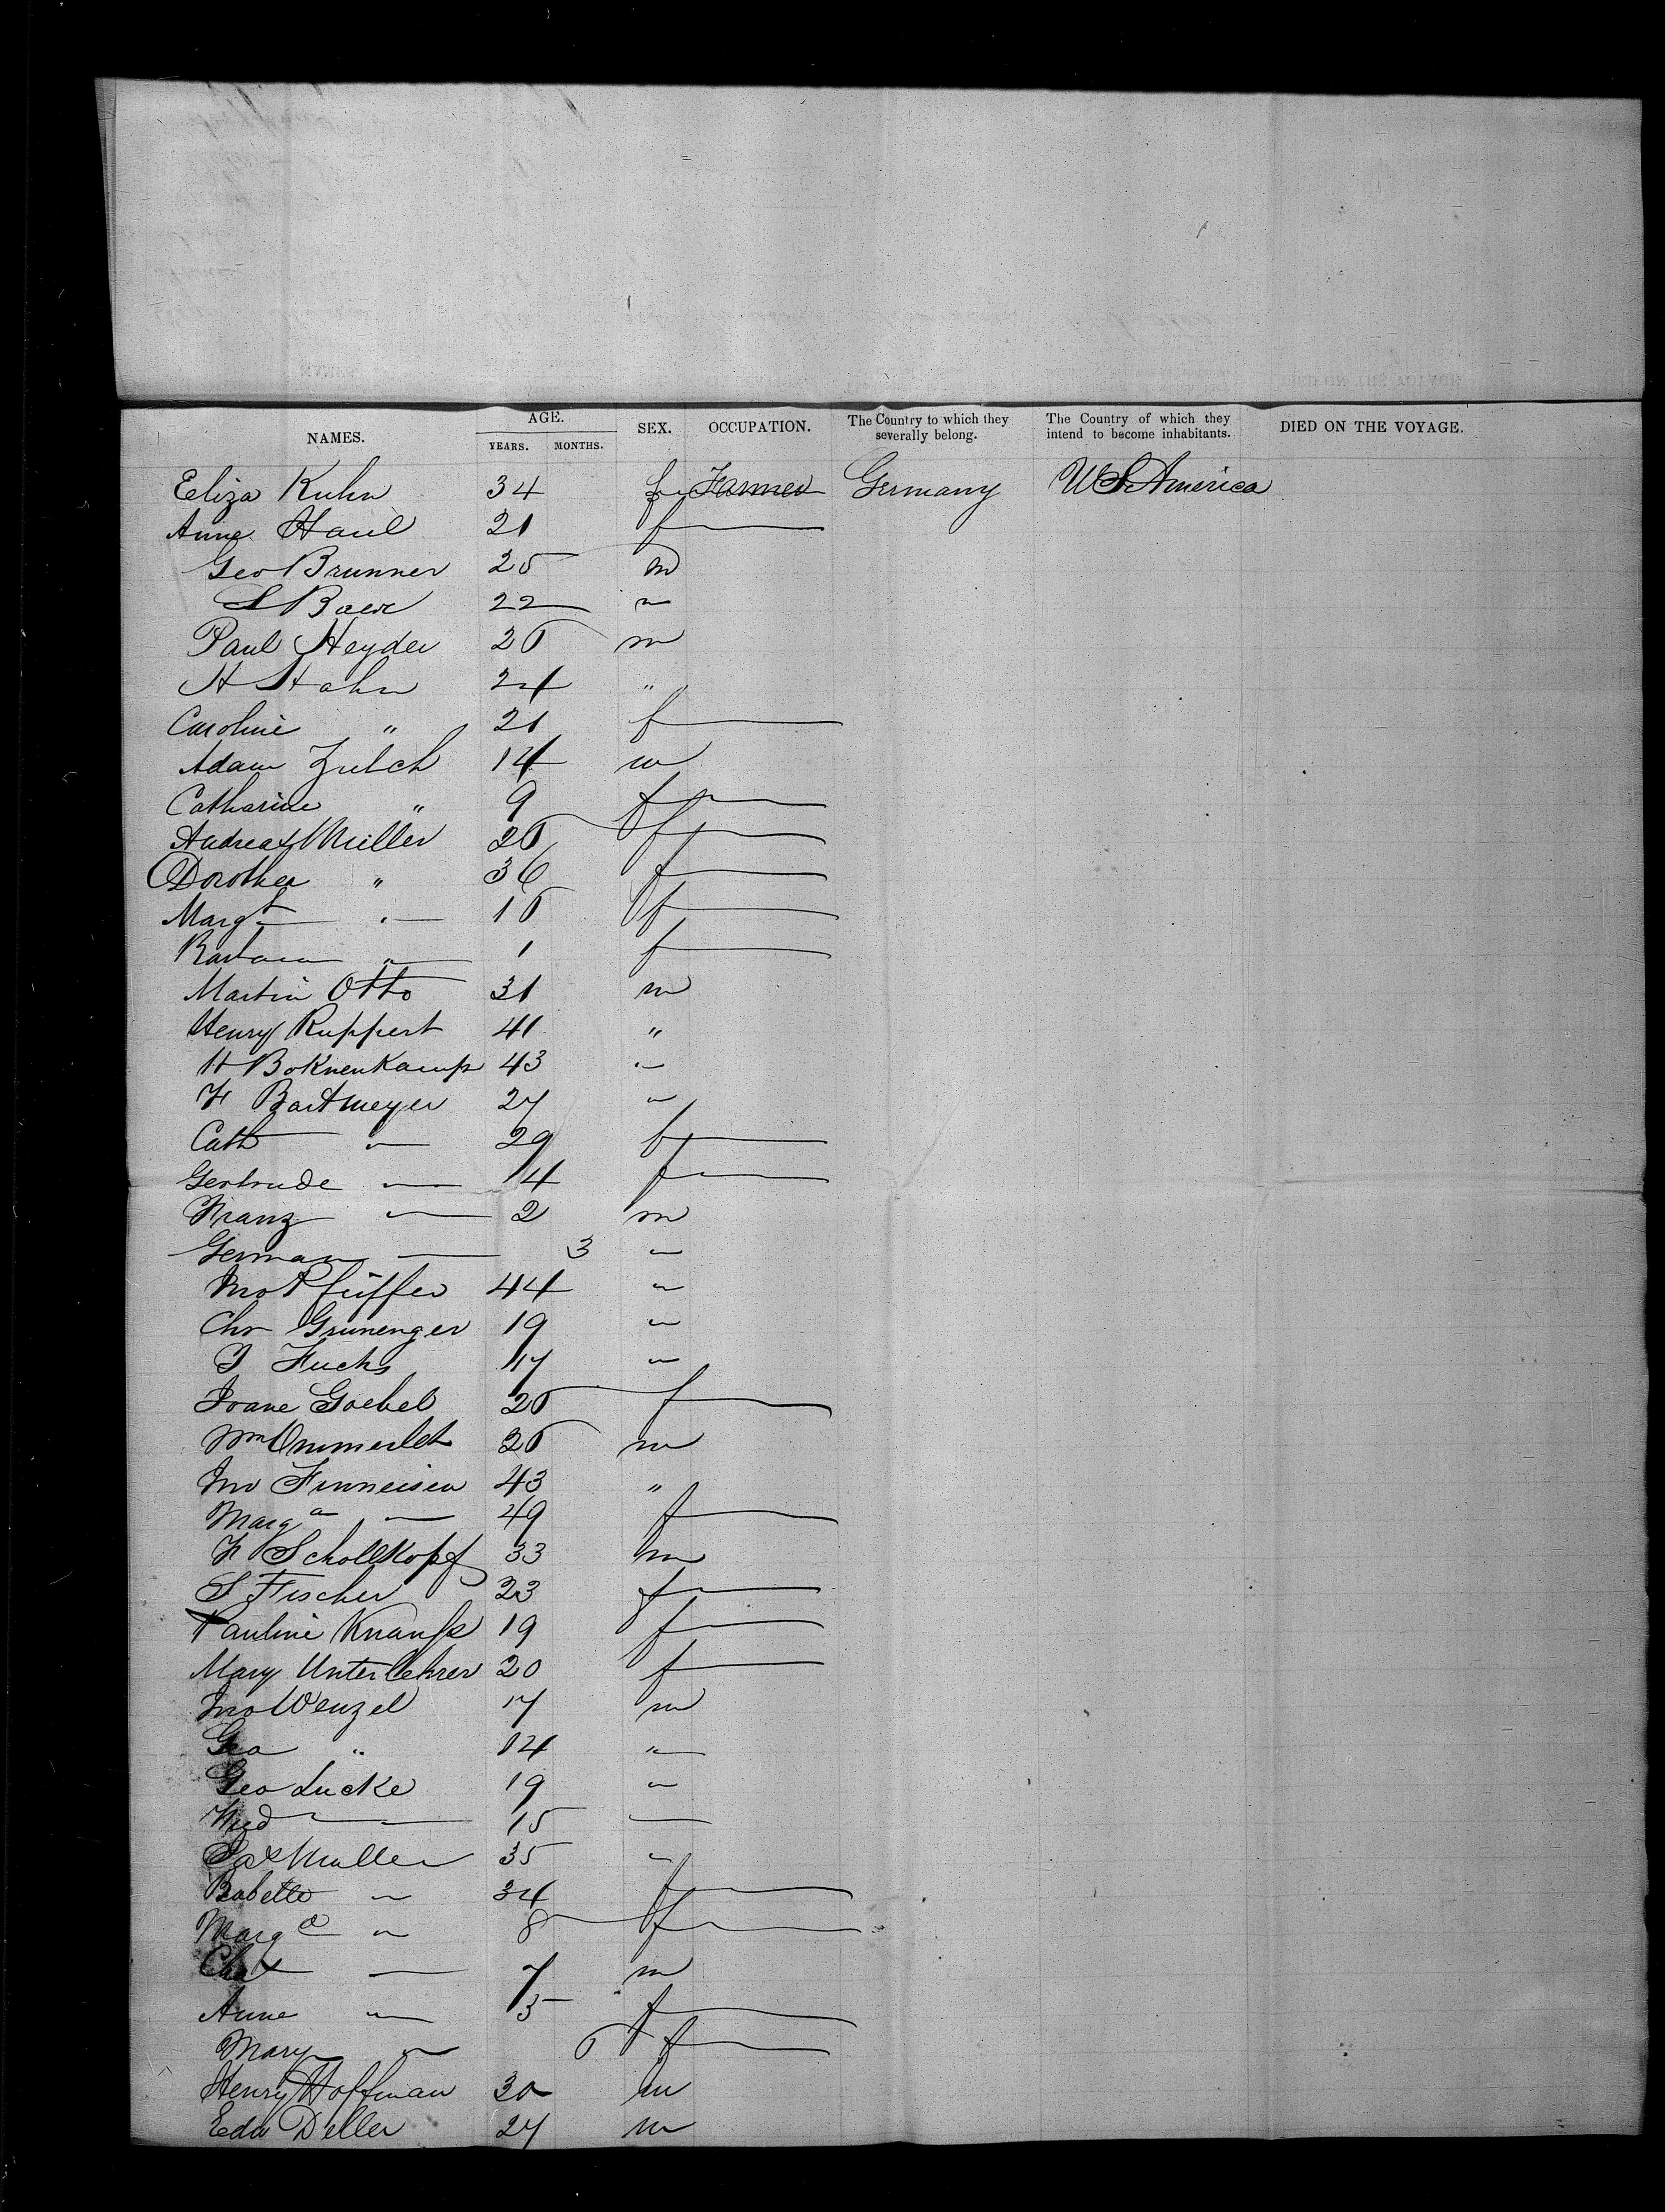 NAMES. AGE. YEARS. MONTHS. SEX. OCCUPATION. The Country to which they severally belong. The Country of which they intend to become inhabitants. DIED ON THE VOYAGE.
Eliza Kuhn 34 f Farmer Germany U S America
Anne Haul 21 f
Geo Brunner 25 m
S Baer 22 "
Paul Heyder 25 m
H Hahn 24 "
Caroline " 21 f
Adam Zulch 14 m
Catharine " 9 f
Andreas Muller 25 f
Dorothea " 36 f
Margt " 15 f
Barbara " 1 f
Martin Otto 31 m
Henry Ruppert 41 "
H Boknenkamp 43 "
F Bartmeyer 27 "
Cath " 29 f
Gertrude " 14 f
Franz " 2 m
German " 3 "
Jno Pfeiffer 44 "
Chr Grunenger 19 "
J Fuchs 17 "
Goebel 25 f
Wm 25 m
Jno Finneisen 43 "
Marga " 49 f
F Schollkopf 33 m
S Fischer 23 f
Pauline Knauss 19 f
Mary Unterlehrer 20 f
Jno Wenzel 17 m
Geo " 14 "
Geo Lucke 19 "
Fred " 15 "
Muller 35 "
Babette " 34 f
Marga " 8 f
Chas " 7 m
Anne " 5 f
Mary " 6 f
Henry Hoffman 30 m
Edw Deller 27 m